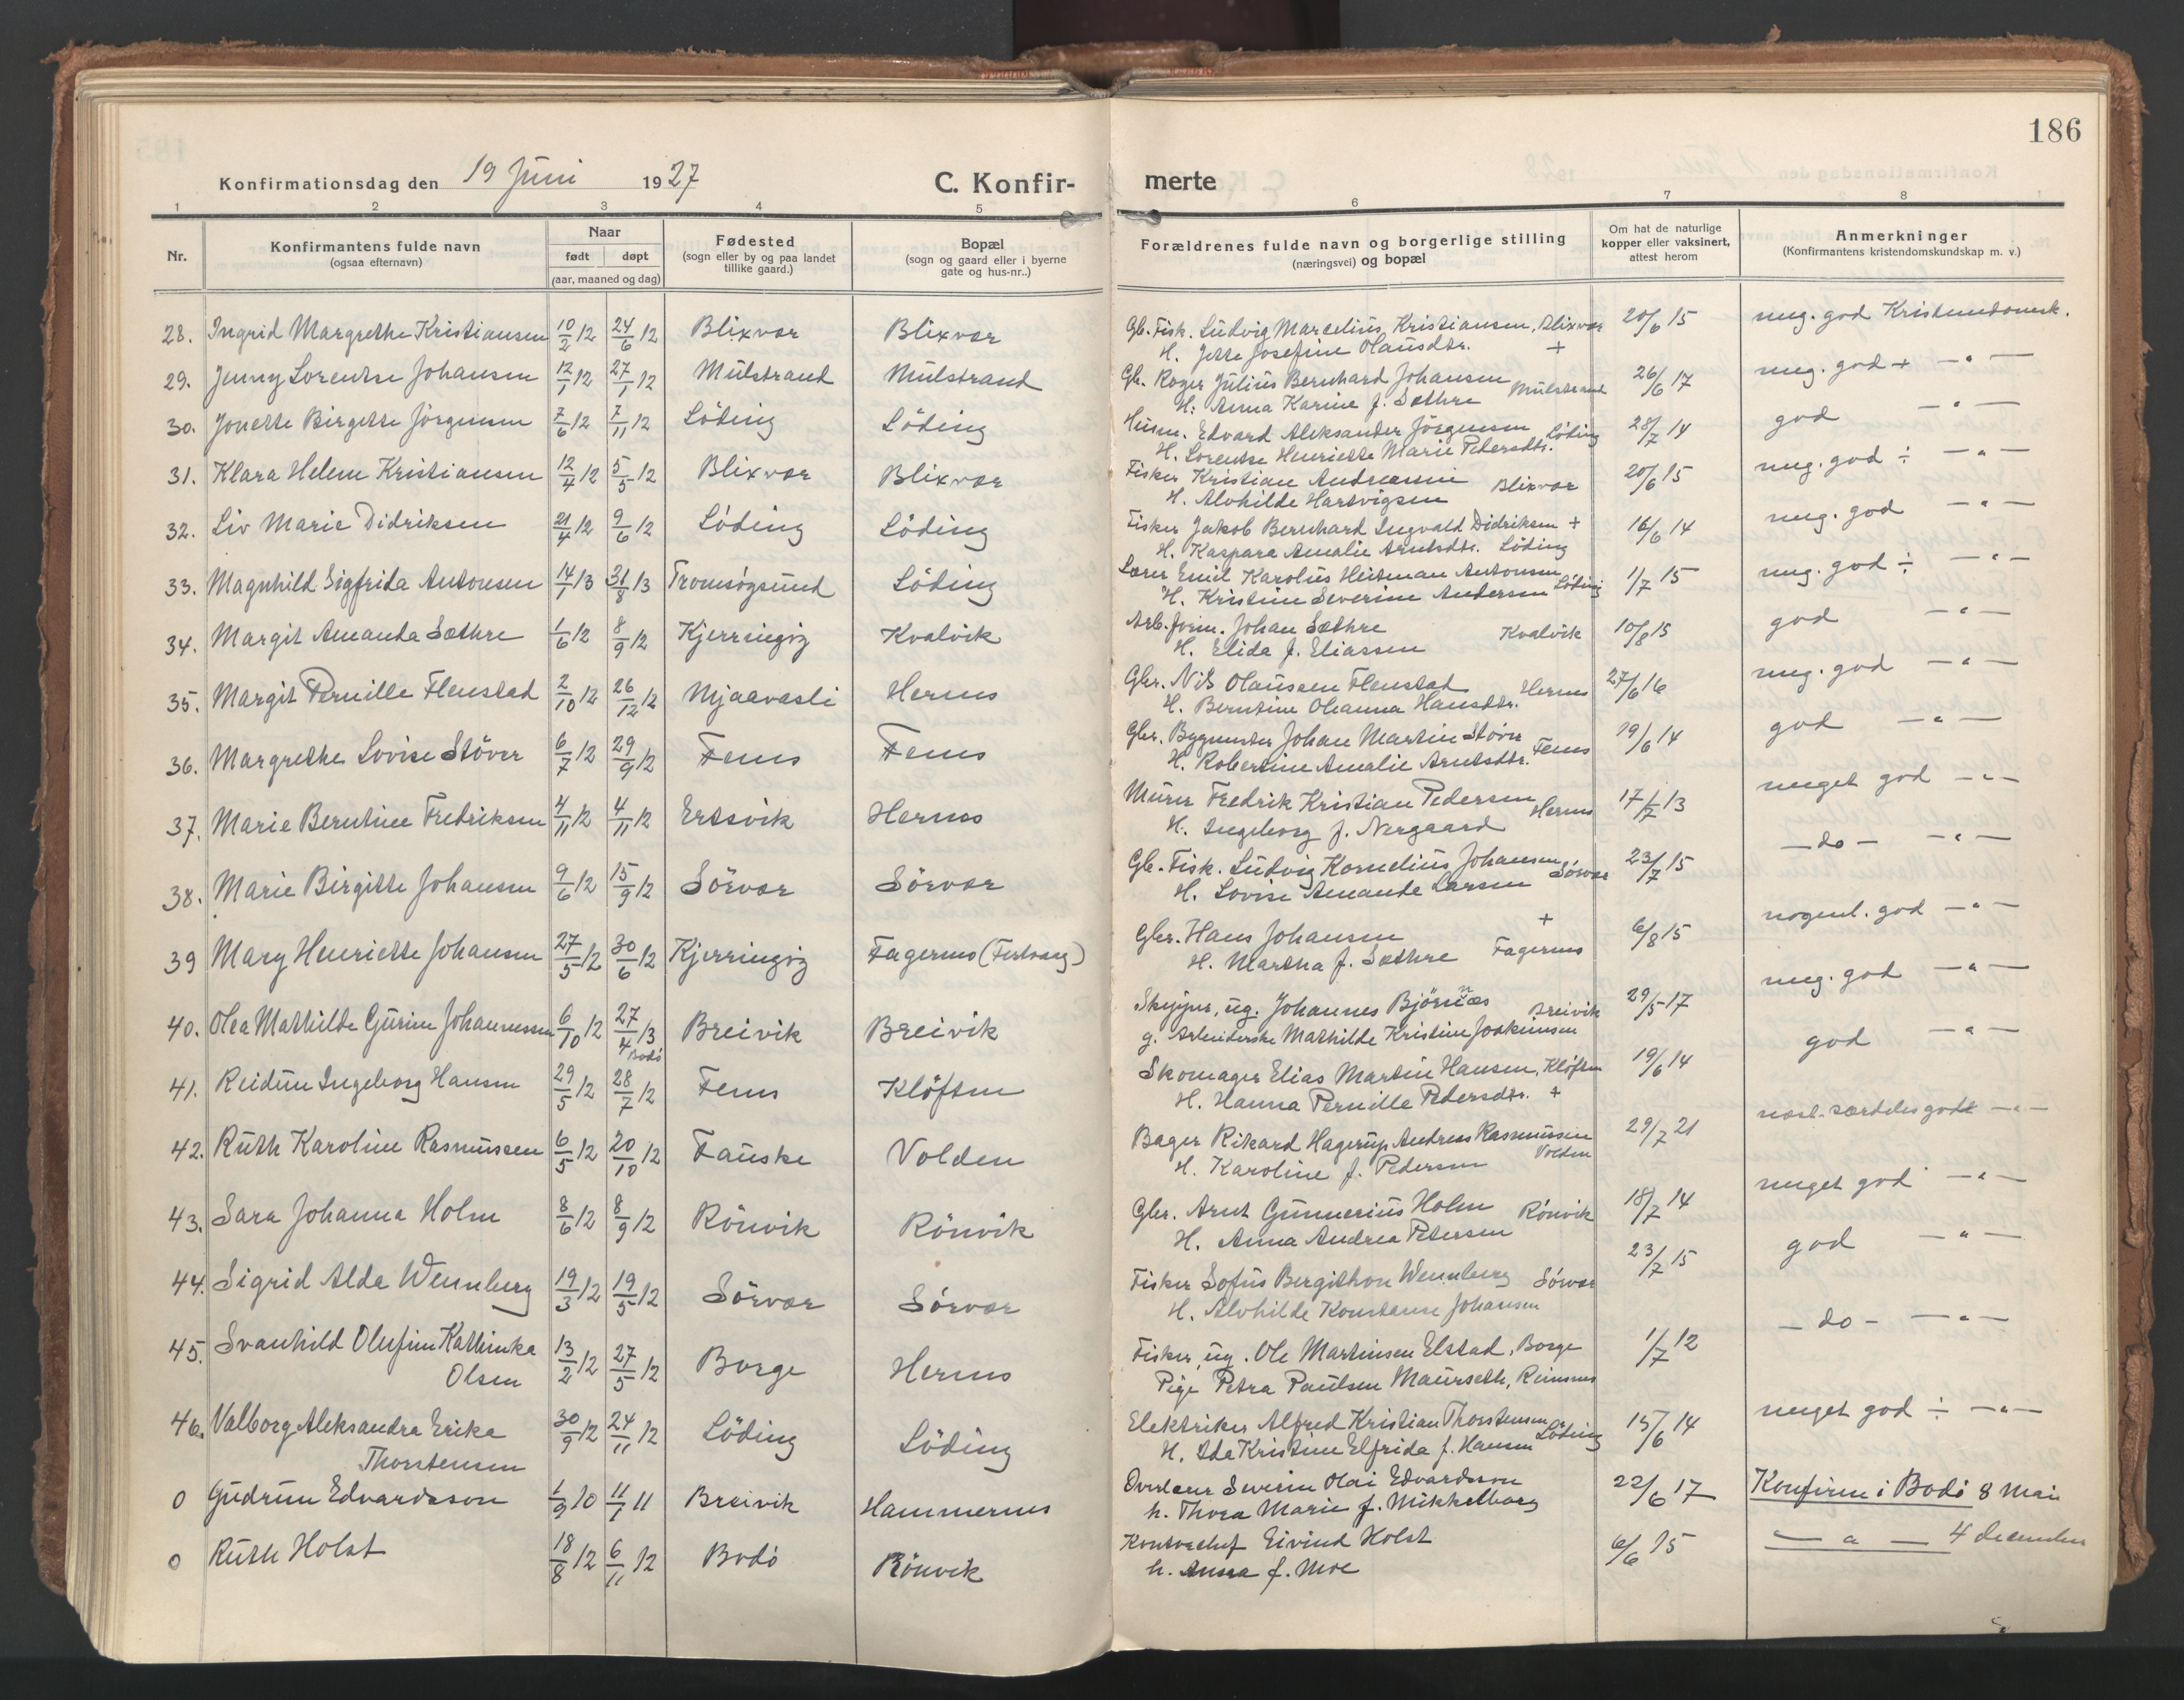 186
Konfirmationsdag den 19 Juni 1927
C. Konfir- merte
1 2 3 4 5 6 7 8
Nr.
Konfirmantens fulde navn
(ogsaa efternavn)
Naar
født døpt
(aar, maaned og dag)
Fødested
(sogn eller by og paa landet
tillike gaard.)
Bopæl
(sogn og gaard eller i byerne
gate og hus-nr..)
Forældrenes fulde navn og borgerlige stilling
(næringsvei) og bopæl
Om hat de naturlige
kopper eller vaksinert,
attest herom
Anmerkninger
(Konfirmantens kristendomskundskap m. v.)
28. Ingrid Margrethe Kristiansen 10/2 12 24/6 12 Blixvær Blixvær Gb. Fisk. Ludvig Marselius Kristiansen, Blixvær 20/6 15 meg. god Kristendomsk.
H. Jette Josefine Olausdtr. +
29. Jenny Lorentse Johansen 12/1 12 27/1 12 Mulstrand Mulstrand Gb. Roger Julius Bernhard Johansen Mulstrand 26/6 17 meg. god + —"—
H. Anna Karine f. Sæthre
30. Jonette Birgitte Jörgensen 7/6 12 7/11 12 Löding Löding Husm. Edvard Aleksander Jörgensen Löding 28/7 14 god —"—
H. Lorentse Henriette Marie Pedersdtr.
31. Klara Helene Kristiansen 12/4 12 5/5 12 Blixvær Blixvær Fisker Kristian Andreassen Blixvær 20/6 15 meg. god ÷ —"—
H. Alvhilde Hartvigsen
32. Liv Marie Didriksen 21/4 12 9/6 12 Löding Löding Fisker Jakob Bernhard Ingvald Didriksen + 16/6 14 meg. god —"—
H. Kaspara Amalie Arntsdtr. Löding
33. Magnhild Sigfrida Antonsen 14/1 13 31/8 13 Tromsöysund Löding Lærer Emil Karolus Heitman Antonsen Löding 1/7 15 meg. god ÷ —"—
H. Kristine Severine Andersen
34. Margit Amanda Sæthre 1/6 12 8/9 12 Kjerringöy Kvalvik Arb. form. Johan Sæthre Kvalvik 10/8 15 god —"—
H. Elida f. Eliassen
35. Margit Pernille Flenstad 2/10 12 26/12 12 Mjaavasli Hernes Gbr. Nils Olaussen Flenstad Hernes 27/6 16 meg. god —"—
H. Berntine Oleanna Hansdtr.
36. Margrethe Lovise Stöver 6/7 12 29/9 12 Fenes Fenes Gbr. Bygmester Johan Martin Stöver Fenes 19/6 14 god —"—
H. Robertine Amalie Arntsdtr.
37. Marie Berntine Fredriksen 4/11 12 4/11 12 Ertsvik Hernes Murer Fredrik Kristian Pedersen Hernes 17/7 13 meget god —"—
H. Ingeborg f. Nergaard
38. Marie Birgitte Johansen 9/6 12 15/9 12 Sörvær Sörvær Gb. Fisk. Ludvig Kornelius Johansen Sörvær 23/7 15 —do— —"—
H. Lovise Amanda Larsen
39 Mary Henriette Johansen 27/5 12 30/6 12 Kjerringöy Fagernes Gbr. Hans Johansen + 6/8 15 nogenl. god —"—
H. Martha f. Sæthre Fagernes
40. Olea Mathilde Gurine Johannessen 6/10 12 27/4 13 Bodö Breivik Breivik Skipper, ug. Johannes Björnnæs Breivik 29/5 17 meg. god —"—
g. Arbeiderske Mathilde Kristine Joakimsen
41. Reidun Ingeborg Hansen 29/5 12 28/7 12 Fenes Klöften Skomager Elias Martin Hansen, Klöften 19/6 14 god —"—
H. Hanna Pernille Pedersdtr. +
42. Ruth Karoline Rasmussen 6/5 12 20/10 12 Fauske Volden Bager Rikard Hagerup Andreas Rasmussen 29/7 21 næst. særdeles godt —"—
H. Karoline f. Pedersen Volden
43. Sara Johanna Holm 8/6 12 8/9 12 Rönvik Rönvik Gbr. Arnt Gunnerius Holm Rönvik 18/7 14 meget god —"—
H. Anna Andrea Petersen
44. Sigrid Alda Wennberg 19/3 12 19/5 12 Sörvær Sörvær Fisker Sofus Bergithon Wennberg Sörvær 23/7 15 god —"—
H. Alvhilde Konstanse Johansen
45. Svanhild Olufine Kathinka 13/2 12 27/5 12 Borge Hernes Fisker, ug. Ole Martinsen Elstad, Borge 1/7 12 —do— —"—
Olsen Pige Petra Paulsen Maurseth, Reinsnes
46. Valborg Aleksandra Erika 30/9 12 24/11 12 Löding Löding Elektriker Alfred Kristian Thorstensen Löding 15/6 14 meget god ÷ —"—
Thorstensen H. Ida Kristine Elfrida f. Hansen
0 Gudrun Edvardsson 1/9 10 11/1 11 Breivik Hammernes Overlærer Severin Olai Edvardsson 22/6 17 Konfirm. i Bodö 8 Mai
h. Thora Marie f. Mikkelborg
0 Ruth Holst 18/8 12 6/11 12 Bodö Rönvik Kontorchef Eivind Holst 6/6 15 —"— 4 december
h. Anna f. Moe